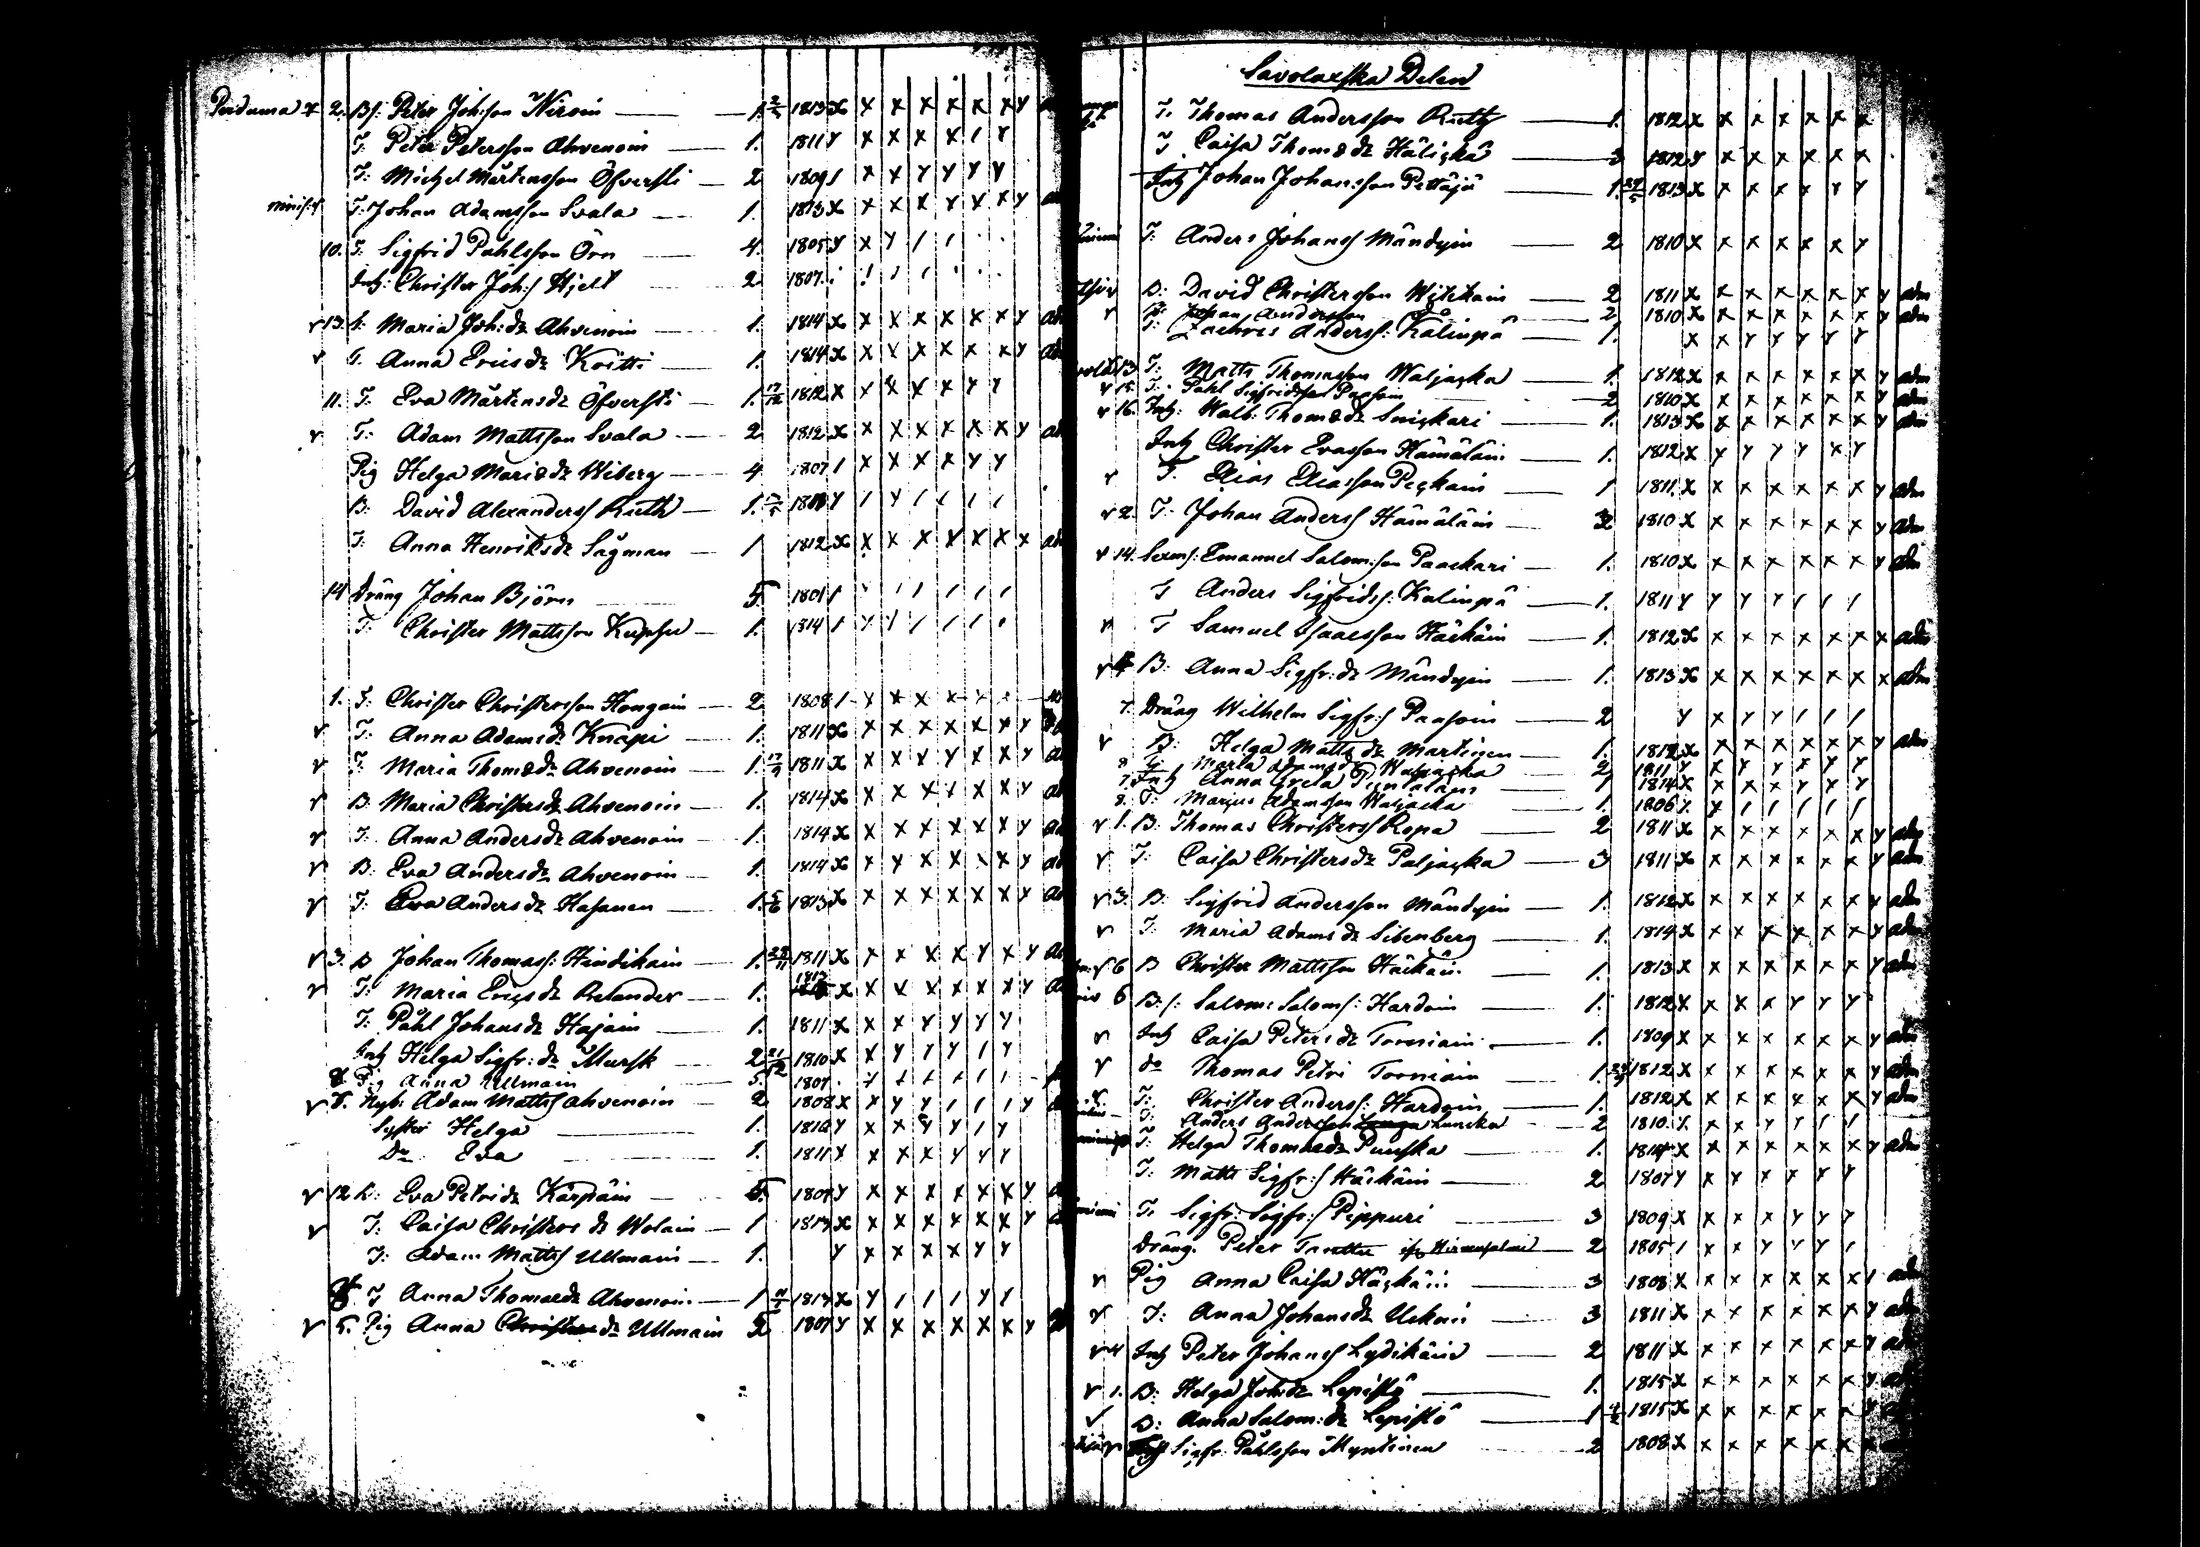 Pindama 2. B/: Peter Joh:son Wiroin 1. 2/5 1813 x x x x x x x y
T: Peter Petersson Ahvenoin 1. 1811 y x x x x / y
T: Michel Mårtensson Öfversti 2 1809 / x x y y y y
T: Johan Adamsson Svala 1. 1813 x x x x y x x y
10. T: Sigfrid Påhlsson Örn 4. 1805 y x y / /
Inh: Christer Joh:s Hjelt 2 1807
v 13. Maria Joh:dr Ahvenoin 1. 1814 x x x x x x x y
v T. Anna Erics dr Koitti 1. 1814 x x x x x x x y
11. T. Eva Mårtens dr Öfversti 1. 17/12 1812 x x x x x y y
v T: Adam Mattsson Svala 2 1812 x x x x x x x y
Pig Helga Maria dr Wiberg 4 1807 / x x x x y y
B. David Alexanders Ruth 1. 1810 y / y / / / /
T: Anna Henriks dr Lågman 1 1812 x x x x y x x x
14 Dräng Johan Björn 5. 1801 / / / / / /
T: Christer Mattsson Kupsu 1. 1814 / y / / / / /
1. T: Christer Christersson Hongoin 2 1808 / x x x x
v T: Anna Adams dr Knapi 1. 1811 x x x x x x x y
v T: Maria Thoms dr Ahvenoin 1. 17/9 1811 x x x x y x x y
v B. Maria Christers dr Ahvenoin 1. 1814 x x x x x x x y
v T. Anna Anders dr Ahvenoin 1. 1814 x x x x x x x y
v B: Eva Anders dr Ahvenoin 1. 1814 x x y x x x x y
v T: Eva Anders dr Hasanen 1. 5/6 1813 x x x x x x x y
v 3. B Johan Thomass: Hindikain 1. 29/11 1811 x x x x x y x y
v T: Maria Erics dr Relander 1. 1813 x x x x x x x y
T. Påhl Johans dr Hajain 1. 1811 x x x y y y y
Inh Helga Sigfr: dr Mursk 2 21/12 1810 x x y y y / y
Pig Anna Ullmain 5. 1807
v 8. Nyb: Adam Matts Ahvenoin 2 1808 x x y y / / / y
Syster Helga 1. 1812 y x x y y / y
Do Eva 1. 1811 y x x x y y y
v 12 B: Eva Petri dr Karpain 5. 1807 y x x x x x x y
v T. Caisa Christers dr Wolain 1 1813 x x x x x x x y
T: Adam Matts Ullmain 1. y x x x x y y
T Anna Thomas dr Ahvenoin 1 1813 x y / / / y /
v 5. Pig Anna dr Ullmain 5 1807 y x x x x x x y
Savolaxska Delen
T. Thomas Andersson Ruth 1. 1812 x x x x x x x
T Caisa Thoms dr Häligkä 3 1812 y x x x x x x
Inh Johan Johansson Pettäjä 1. 1813 x x x x x y y
T: Anders Johans Mändyin 2 1810 x x x x x x y
B: David Christersson Witikain 2 1811 x x x x x x x y adm
v Johan Andersson 2 1810 x x x x x x x y adm
T: Zachris Anderss: Kälinpä 1. x x y y y y y
13 T: Matts Thomasson Waljacka 1. 1812 x x x x x x x y adm
v 15. T. Påhl Sigfridsson Paasoin 2 1810 x x x x x x x y adm
v 16. Inh: Walb: Thoms dr Snickari 1. 1813 x x x x x x x y adm
Inh Christer Evasson Hämäläin 1. 1812 x y y y y x y
v T. Elias Eliasson Peckain 1 1811 x x x x x x x y adm
v 2. T: Johan Anders Hämäläin 2 1810 x x x x x x x y adm
v 14. Sexm: Emanuel Salom:son Paackari 1. 1810 x x x x x x x y adm
T Anders Sigfridss: Kalinpä 1. 1811 y y y y / / /
v T Samuel Isaacsson Häckäin 1. 1812 x x x x x x x x adm
v 4 B: Anna Sigfr: dr Mändyin 1. 1813 x x x x x x x x adm
7. Dräng Wilhelm Sigfr:s Paasoin 2 y x y y / / /
v B: Helga Matts dr Martinen 1. 1812 x x x x x x x y adm
8 T: Maria Adams dr Waljacka 2 1811 y x y y x y y
7. Inh Anna Greta 1 1814 x x x x y y y
8. T. Marcus Adamsson Waljacka 1. 1806 y y / / / / /
v 1. B: Thomas Christers Ropa 2 1811 x x x x x x x y adm
v T: Caisa Christers dr Paljacka 3 1811 x x x x x x x y adm
v 3. B: Sigfrid Andersson Mändyin 1. 1812 x x x x x x x y adm
v T. Maria Adams dr Sibenberg 1. 1814 x x x x x x x y adm
v 6 B Christer Mattsson Häckäin 1. 1813 x x x x x x x y adm
6 B:/: Salom: Saloms: Hardoin 1. 1812 x x x x y y y
v Inh Caisa Peters dr Torniain 1. 1809 x x x x x x x y adm
v do Thomas Petri Torniain 1. 1812 x x x x x x x y adm
v T: Christer Anderss: Hardoin 1. 1812 x x x x x x x y adm
T: Anders Andersson Luncka 2 1810 y x x y y / /
T: Helga Thomas dr Punska 1. 1814 x x x x x x x y adm
T. Matts Sigfr:s Häckäin 2 1807 y x y x x y y
T. Sigfr: Sigfr:s Pippuri 3 1809 x x x x y y y
Dräng. Peter Tanttu 2 1805 / x x y y y /
v Pig Anna Caisa Häckäin 3 1808 x x x x x x x / adm
v T: Anna Johans dr Uckoin 3 1811 x x x x x x x y adm
v 4 Inh Peter Johans Lydikäin 2 1811 x x x x x x x y
v 1. B: Helga Joh:dr Lepistö 1. 1815 x x x x x x x y
v B: Anna Salom: dr Lepistö 1 1815 x x x x x x x y
Sigfr: Påhlsson Myntinen 2 1808 x x x x x x x